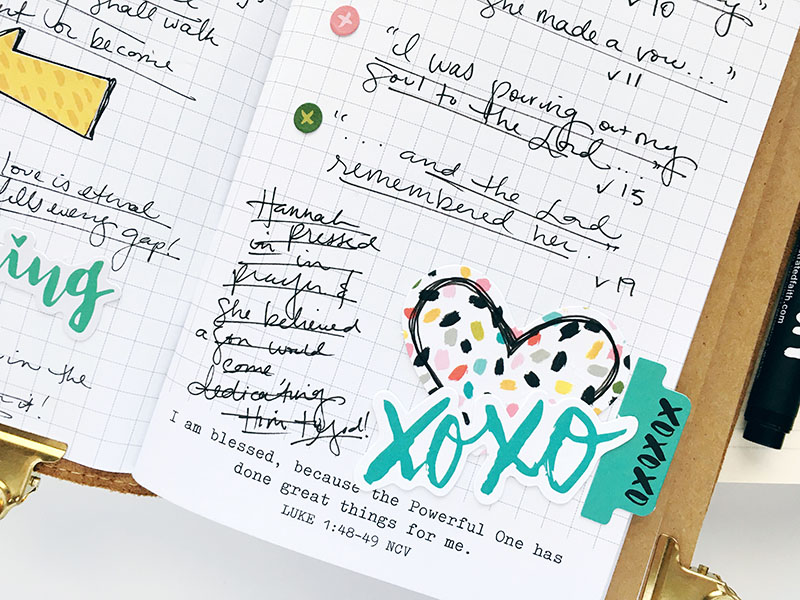 shall walk
become
love is etrnal
fills every gap!
ing
in the
v10
she made a vow..."
v11
"I was pouring out my
soul to the Lord..."
v15
"... and the Lord
remembered her."
v19
Hannah
in pressed
in
prayer &
she believed
a son would
come
dedicating
Him to God!
xoxo
xoxoxo
I am blessed, because the Powerful One has
done great things for me.
LUKE 1:48-49 NCV
ratedfaith.com